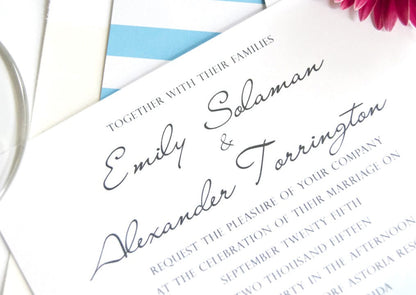 TOGETHER WITH THEIR FAMILIES
Emily Solaman
&
Alexander Torrington
REQUEST THE PLEASURE OF YOUR COMPANY
AT THE CELEBRATION OF THEIR MARRIAGE ON
SEPTEMBER TWENTY FIFTH
TWO THOUSAND FIFTEEN
IN THE AFTERNOON
ASTORIA